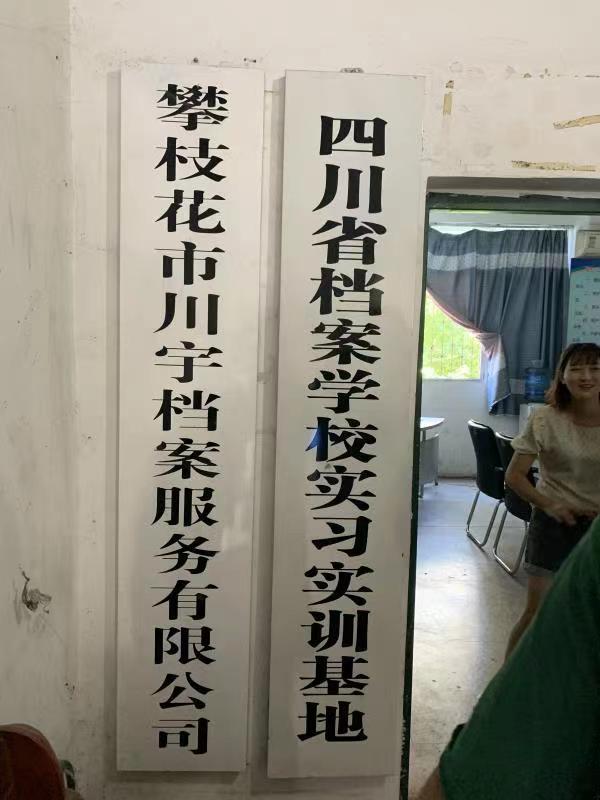 攀枝花市川宇档案服务有限公司
四川省档案学校实习实训基地